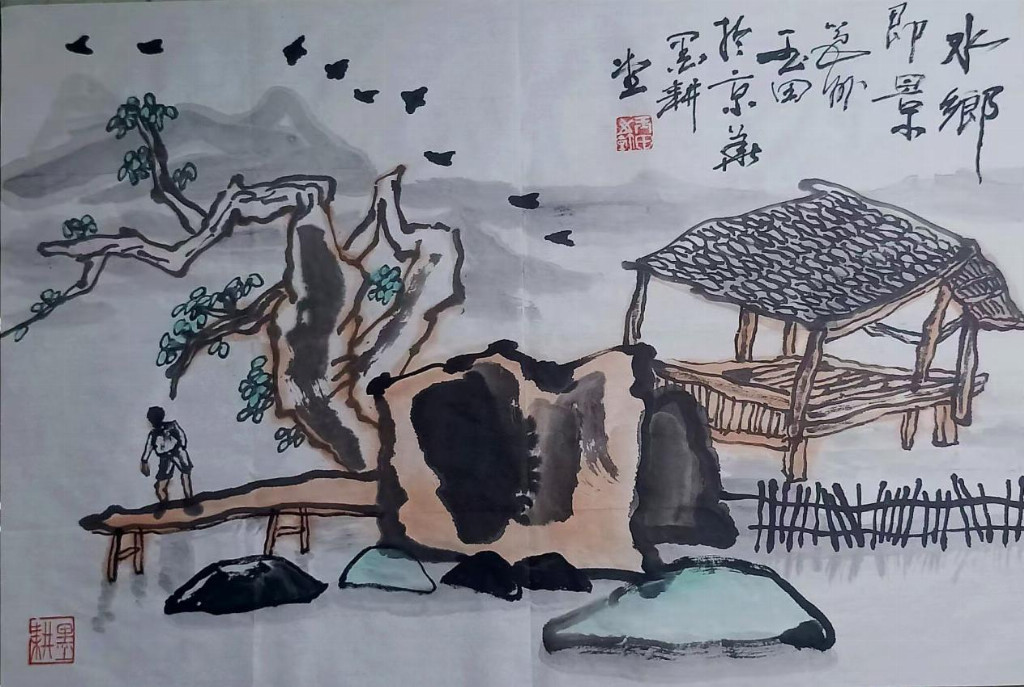 水鄉
即景
州
玉田
於京華
墨耕
堂
墨耕